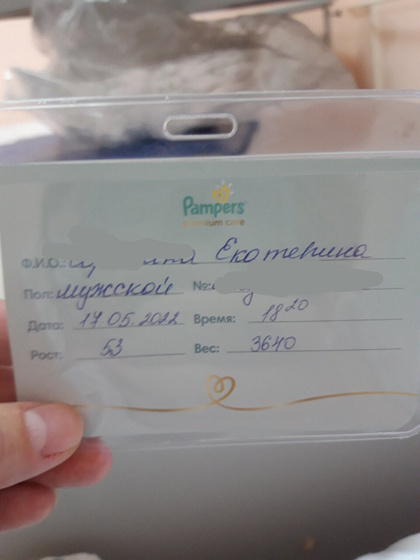 Pampers
premium care
Ф.И.О.: Екотерина
Пол: мужской №:
Дата: 17.05.2022 Время: 18 20
Рост: 53 Вес: 3640